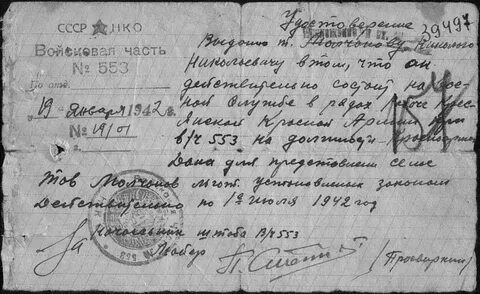 СССР НКО
Войсковая часть
№ 553
19 января 1942 г.
№ 19/01
39497
Удостоверение
Выдано т. Молчанову Николаю
Николаевичу в том, что он
действительно состоит на воен
ной службе в рядах Рабоче Крес
янской Красной Армии при
в/ч 553 на должности Красноармеец
Дана для представления семье
тов Молчанов льгот установленных законом
Действительно по 1е июля 1942 год
За Начальник штаба В/Ч 553